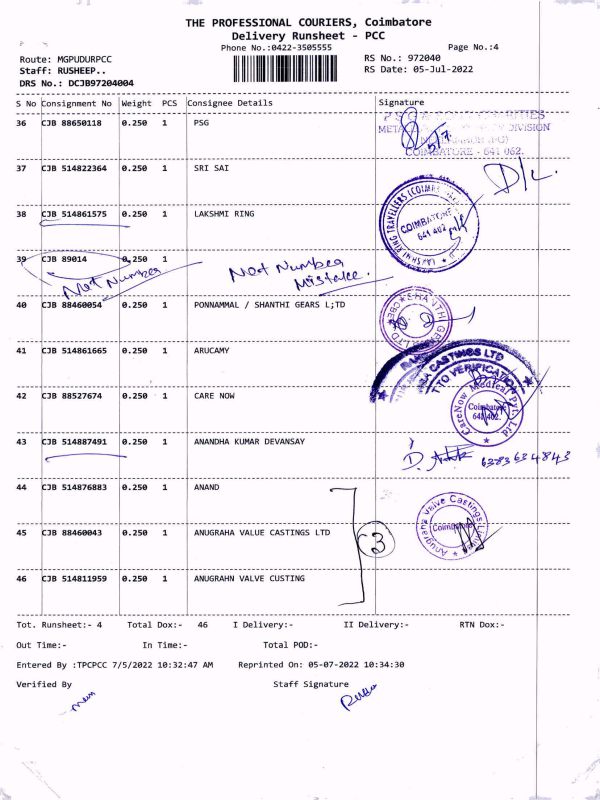 THE PROFESSIONAL COURIERS, Coimbatore
Delivery Runsheet - PCC
Phone No.:0422-3505555
Page No.:4
Route: MGPUDURPCC
RS No.: 972040
Staff: RUSHEEP..
RS Date: 05-Jul-2022
DRS No.: DCJB97204004
S No Consignment No Weight PCS Consignee Details Signature
36 CJB 88650118 0.250 1 PSG
DIVISION
COIMBATORE - 641 062.
37 CJB 514822364 0.250 1 SRI SAI
D/c.
38 CJB 514861575 0.250 1 LAKSHMI RING
LAKSHMI RING TRAVELLERS (COIMBATORE)
COIMBATORE
641 402
39 CJB 89014 0.250 1
Not Number
Not Number
Mistake.
40 CJB 88460054 0.250 1 PONNAMMAL / SHANTHI GEARS L;TD
41 CJB 514861665 0.250 1 ARUCAMY
CASTINGS LTD
VERIFICATION
42 CJB 88527674 0.250 1 CARE NOW
CareNow Medical Pvt. Ltd
Coimbatore
43 CJB 514887491 0.250 1 ANANDHA KUMAR DEVANSAY
6383634843
44 CJB 514876883 0.250 1 ANAND
45 CJB 88460043 0.250 1 ANUGRAHA VALUE CASTINGS LTD
3
Anugraha Valve Castings Limited
Coimbatore
46 CJB 514811959 0.250 1 ANUGRAHN VALVE CUSTING
Tot. Runsheet:- 4 Total Dox:- 46 I Delivery:- II Delivery:- RTN Dox:-
Out Time:- In Time:- Total POD:-
Entered By :TPCPCC 7/5/2022 10:32:47 AM Reprinted On: 05-07-2022 10:34:30
Verified By Staff Signature